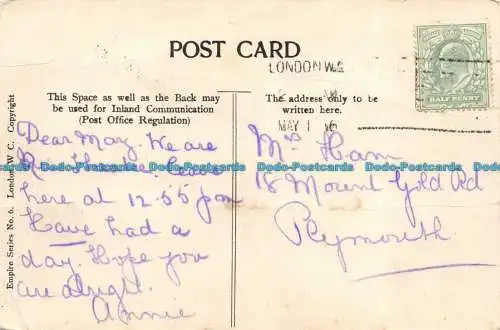 POST CARD
LONDON W.C
MAY 1
HALF PENNY
This Space as well as the Back may
be used for Inland Communication
(Post Office Regulation)
The address only to be
written here.
Empire Series No. 6. London, W. C. Copyright
Dear May. We are
leave
here at 12.55 pm
Have had a
day. Hope you
are alright.
Annie
Mrs Ham
18 Mount Gold Rd
Plymouth
Dodo-Postcards Dodo-Postcards Dodo-Postcards Dodo-Postcards Dodo-Postcards